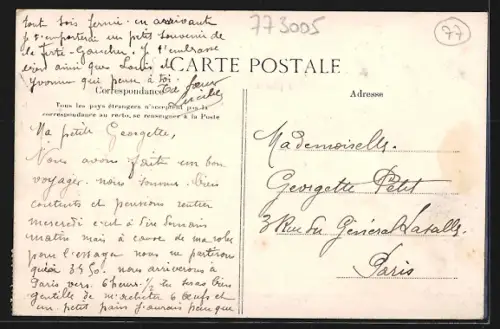 773005
77
CARTE POSTALE
Correspondance
Tous les pays étrangers n'acceptent pas la
correspondance au recto, se renseigner à la Poste
Adresse
Ma petite Georgette,
Nous avons faite un bon
voyager. nous sommes bien
contents et pensons rentrer
mercredi c'est à dire demain
matin mais à cause de ma robe
pour l'essayage nous ne partirons
qu'à 3h50. nous arriverons à
Paris vers 6 heures 1/2 tu seras bien
gentille de m'acheter 6 œufs et
un petit pain j'aurais peur que
tout sois fermé en arrivant
je t'emporterai un petit souvenir de
la Ferté-Gaucher. Je t'embrasse
bien ainsi que Louis et
Yvonne qui pense à toi.
Ta Sœur
Mademoiselle
Georgette Petit
3 Rue du Général Lasalle
Paris